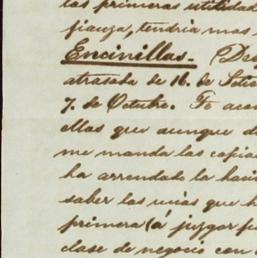 las primeras utilidad
fianza, tendria mas
Encinillas.- (Des
atrasada de 16. de Setie
7. de Octubre. Te acom
ellas que aunque d
me manda las copia
ha arrendado la haci
saber las uñas que h
primera (á juzgar p
clase de negocio con